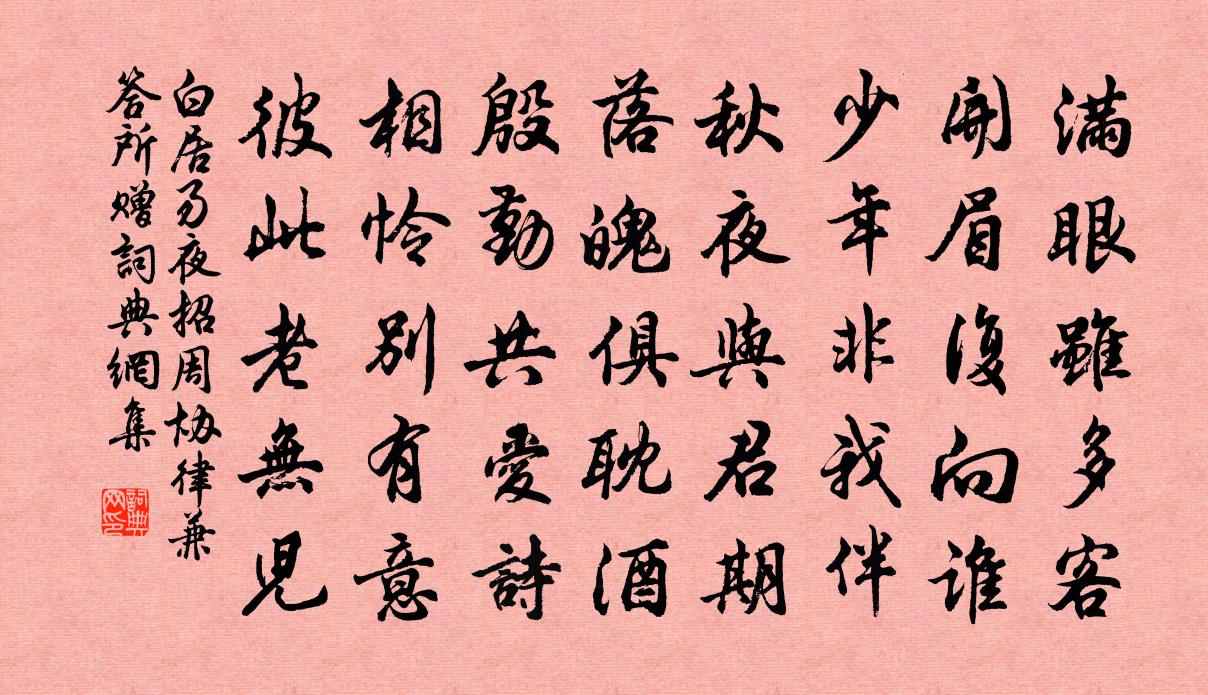 滿眼雖多客
開眉復向誰
少年非我伴
秋夜與君期
落魄俱耽酒
殷勤共愛詩
相憐別有意
彼此老無兒
白居易夜招周协律兼
答所赠詞典網集
詞典網印